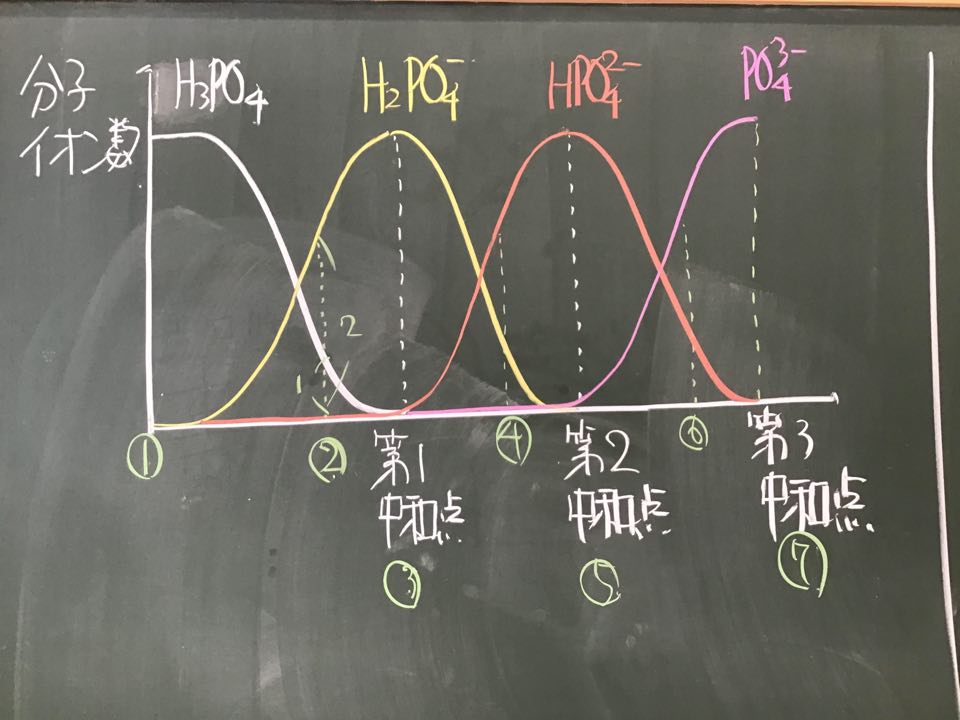 分子
イオン数
H₃PO₄
H₂PO₄⁻
HPO₄²⁻
PO₄³⁻
1
2
①
②
第1
中和点
③
④
第2
中和点
⑤
⑥
第3
中和点
⑦